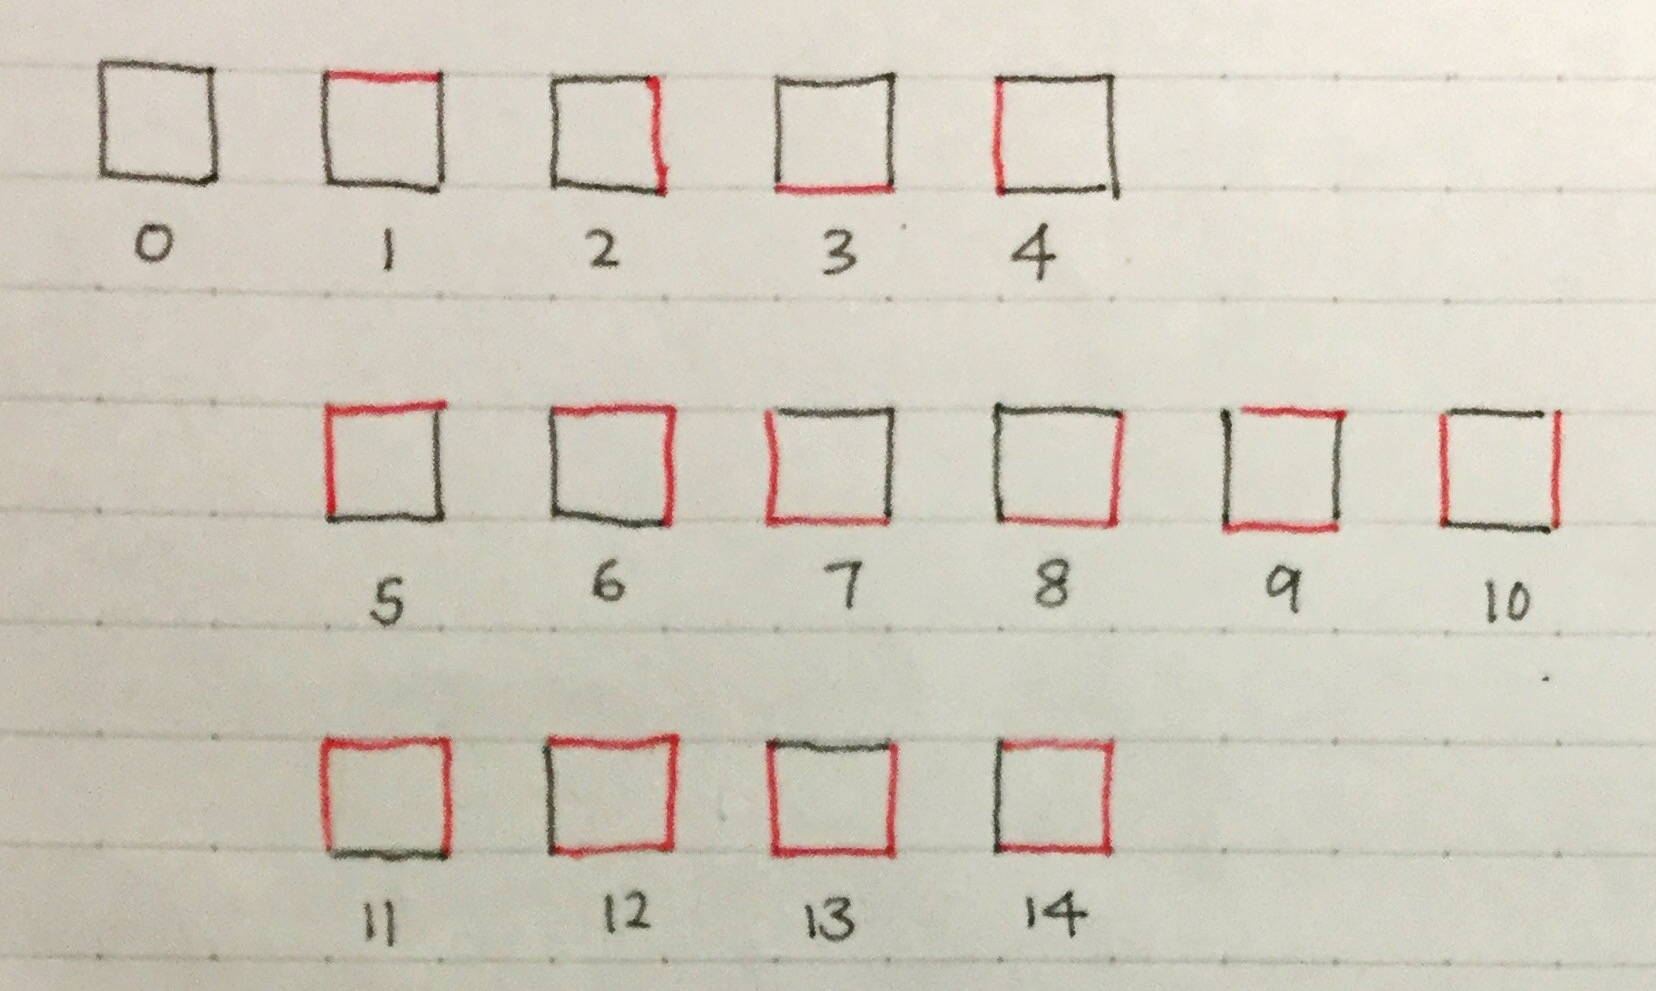 0 1 2 3 4
5 6 7 8 9 10
11 12 13 14